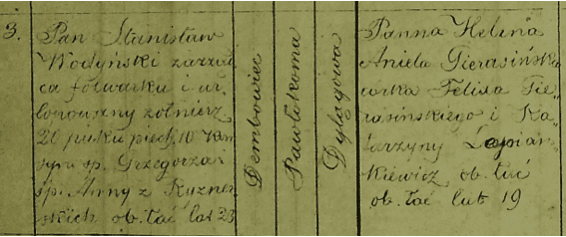 3.
Pan Stanisław
Wodyński zarząd
ca folwarku i ur
lopowany żołnierz
20 pułku piech. 10 kom
syn śp. Grzegorza i
śp. Anny z Kuźnar
skich ob. łać lat 23
Dembowiec
Pawłokoma
Dylągowa
Panna Helena
Aniela Gierasińska
córka Felixa Gie
rasińskiego i Ka
tarzyny
kiewicz ob. łać
ob. łać lat 19